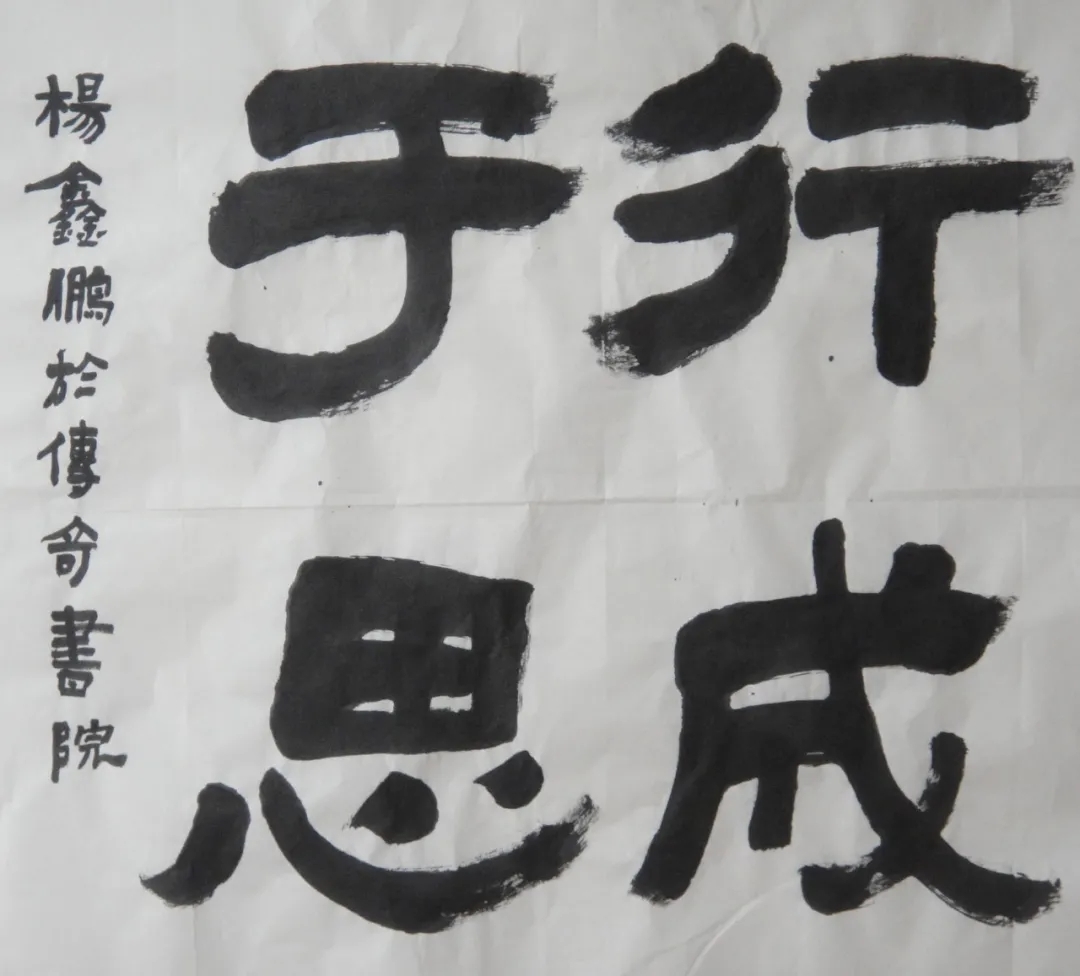 行成
于思
楊鑫鵬於傳奇書院